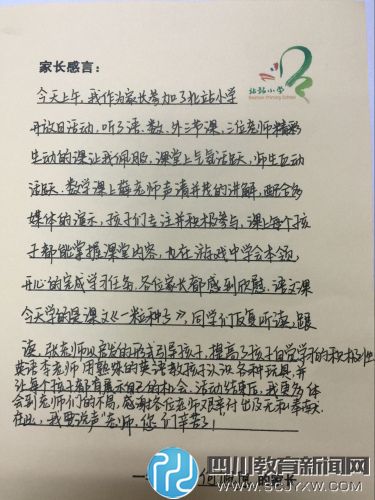 家长感言：
北站小学
今天上午，我作为家长参加了北站小学
开放日活动，听了语、数、外三节课，三位老师精彩
生动的课让我佩服，课堂上气氛活跃，师生互动
活跃。数学课上薛老师声情并茂的讲解，配合多
媒体的演示，孩子们专注并积极参与，课上每个孩
子都能掌握课堂内容，也在游戏中学会本领，
开心的完成学习任务，各位家长都感到欣慰。语文课
今天学的是课文《一粒种子》，同学们反复听读，跟
读，张老师以启发的形式引导孩子，提高了孩子自觉学习的积极性
英语李老师用熟练的英语教孩子认识各种玩具，并
让每个孩子都有展示自己的机会，活动结束后，我更多体
会到老师们的不易，感谢各位老师艰辛付出及无私奉献。
在此，我要说声"老师，您们辛苦了！
的家长
四川教育新闻网
WWW.SCJYXW.COM